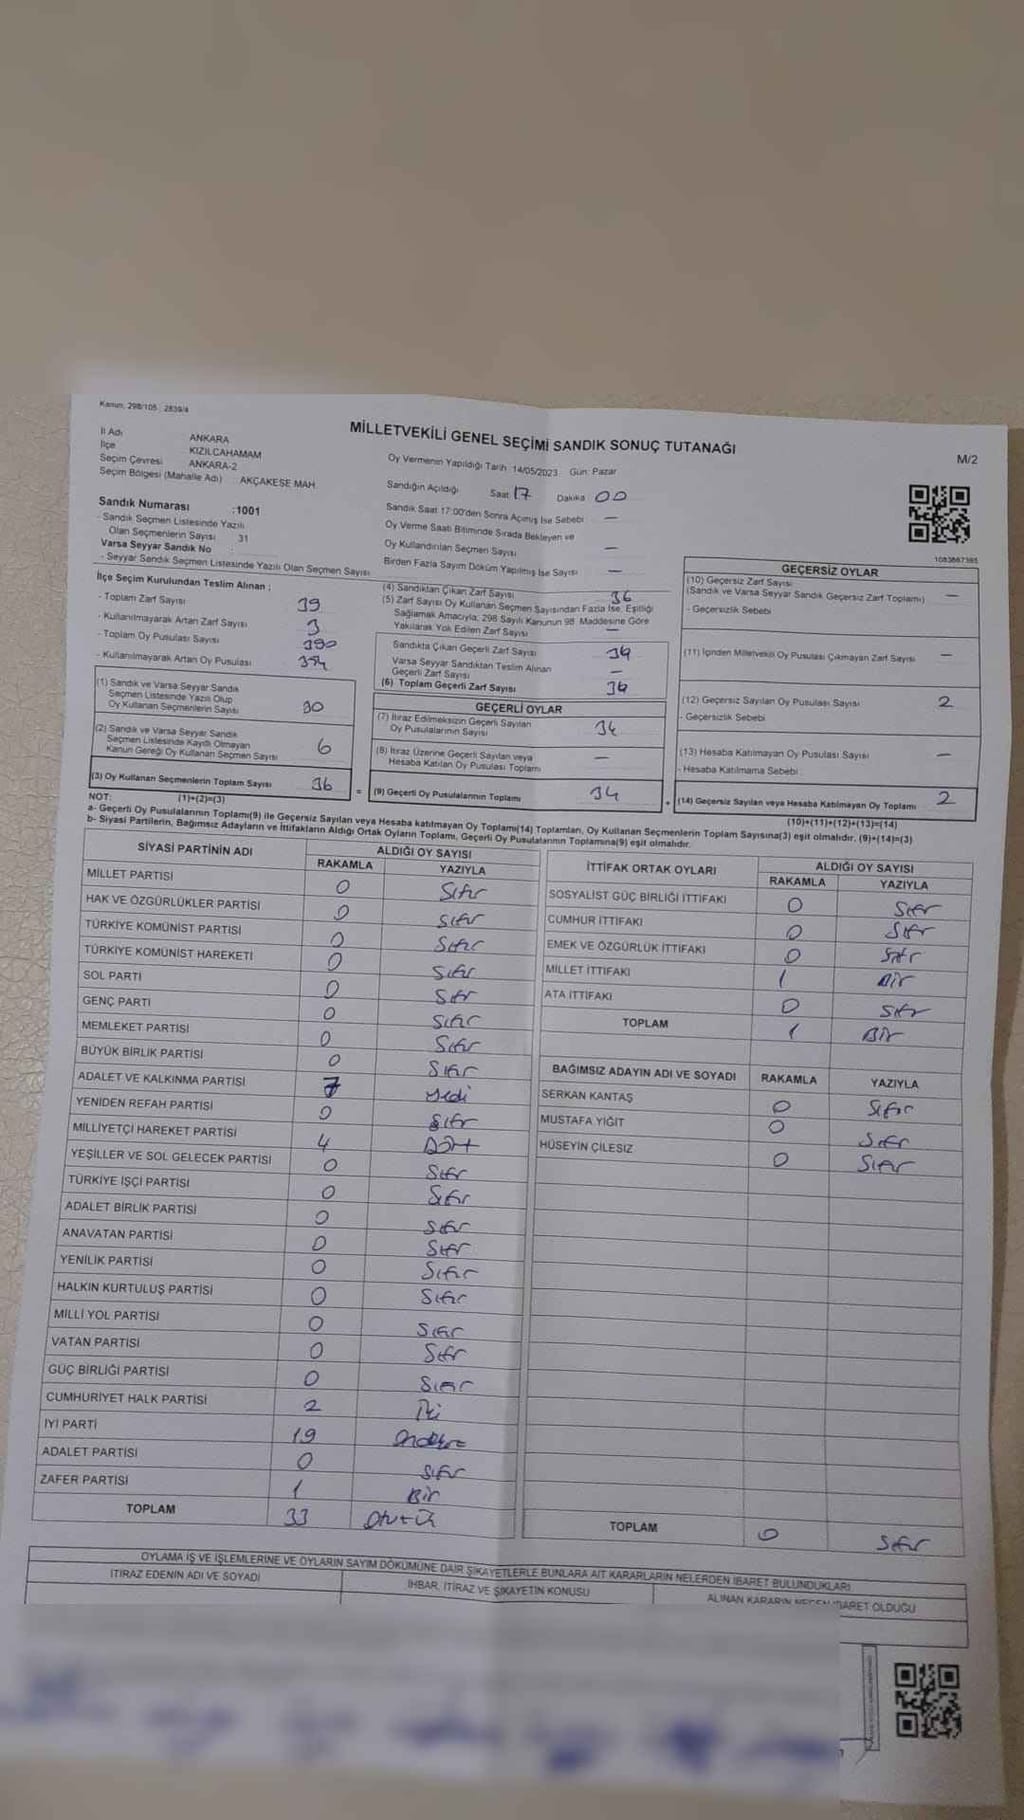 Kanun: 298/105, 2839/4
MİLLETVEKİLİ GENEL SEÇİMİ SANDIK SONUÇ TUTANAĞI
M/2
İl Adı ANKARA
İlçe KIZILCAHAMAM
Seçim Çevresi ANKARA-2
Seçim Bölgesi (Mahalle Adı) AKÇAKESE MAH.
Oy Vermenin Yapıldığı Tarih: 14/05/2023 Gün: Pazar
Sandığın Açıldığı Saat 17 Dakika 00
Sandık Saat 17:00'den Sonra Açımış İse Sebebi —
Oy Verme Saati Bitiminde Sırada Bekleyen ve
Oy Kullandırılan Seçmen Sayısı —
Birden Fazla Sayım Döküm Yapılmış İse Sayısı —
Sandık Numarası :1001
- Sandık Seçmen Listesinde Yazılı
Olan Seçmenlerin Sayısı 31
Varsa Seyyar Sandık No :
- Seyyar Sandık Seçmen Listesinde Yazılı Olan Seçmen Sayısı
1083667385
İlçe Seçim Kurulundan Teslim Alınan ;
- Toplam Zarf Sayısı 39
- Kullanılmayarak Artan Zarf Sayısı 3
- Toplam Oy Pusulası Sayısı 390
- Kullanılmayarak Artan Oy Pusulası 354
(1) Sandık ve Varsa Seyyar Sandık
Seçmen Listesinde Yazılı Olup
Oy Kullanan Seçmenlerin Sayısı 30
(2) Sandık ve Varsa Seyyar Sandık
Seçmen Listesinde Kayıtlı Olmayan
Kanun Gereği Oy Kullanan Seçmen Sayısı 6
(3) Oy Kullanan Seçmenlerin Toplam Sayısı 36
(1)+(2)=(3)
(4) Sandıktan Çıkan Zarf Sayısı 36
(5) Zarf Sayısı Oy Kullanan Seçmen Sayısından Fazla İse, Eşitliği
Sağlamak Amacıyla, 298 Sayılı Kanunun 98. Maddesine Göre
Yakılarak Yok Edilen Zarf Sayısı —
Sandıkta Çıkan Geçerli Zarf Sayısı 34
Varsa Seyyar Sandıktan Teslim Alınan
Geçerli Zarf Sayısı —
(6) Toplam Geçerli Zarf Sayısı 34
GEÇERLİ OYLAR
(7) İtiraz Edilmeksizin Geçerli Sayılan
Oy Pusulalarının Sayısı 34
(8) İtiraz Üzerine Geçerli Sayılan veya
Hesaba Katılan Oy Pusulası Toplamı —
= (9) Geçerli Oy Pusulalarının Toplamı 34
GEÇERSİZ OYLAR
(10) Geçersiz Zarf Sayısı
(Sandık ve Varsa Seyyar Sandık Geçersiz Zarf Toplamı) —
- Geçersizlik Sebebi
(11) İçinden Milletvekili Oy Pusulası Çıkmayan Zarf Sayısı —
(12) Geçersiz Sayılan Oy Pusulası Sayısı 2
- Geçersizlik Sebebi
(13) Hesaba Katılmayan Oy Pusulası Sayısı —
- Hesaba Katılmama Sebebi :
+ (14) Geçersiz Sayılan veya Hesaba Katılmayan Oy Toplamı 2
(10)+(11)+(12)+(13)=(14)
NOT:
a- Geçerli Oy Pusulalarının Toplamı(9) ile Geçersiz Sayılan veya Hesaba katılmayan Oy Toplamı(14) Toplamları, Oy Kullanan Seçmenlerin Toplam Sayısına(3) eşit olmalıdır. (9)+(14)=(3)
b- Siyasi Partilerin, Bağımsız Adayların ve İttifakların Aldığı Ortak Oyların Toplamı, Geçerli Oy Pusulalarının Toplamına(9) eşit olmalıdır.
SİYASİ PARTİNİN ADI ALDIĞI OY SAYISI
RAKAMLA YAZIYLA
MİLLET PARTİSİ 0 Sıfır
HAK VE ÖZGÜRLÜKLER PARTİSİ 0 Sıfır
TÜRKİYE KOMÜNİST PARTİSİ 0 Sıfır
TÜRKİYE KOMÜNİST HAREKETİ 0 Sıfır
SOL PARTİ 0 Sıfır
GENÇ PARTİ 0 Sıfır
MEMLEKET PARTİSİ 0 Sıfır
BÜYÜK BİRLİK PARTİSİ 0 Sıfır
ADALET VE KALKINMA PARTİSİ 7 Yedi
YENİDEN REFAH PARTİSİ 0 Sıfır
MİLLİYETÇİ HAREKET PARTİSİ 4 Dört
YEŞİLLER VE SOL GELECEK PARTİSİ 0 Sıfır
TÜRKİYE İŞÇİ PARTİSİ 0 Sıfır
ADALET BİRLİK PARTİSİ 0 Sıfır
ANAVATAN PARTİSİ 0 Sıfır
YENİLİK PARTİSİ 0 Sıfır
HALKIN KURTULUŞ PARTİSİ 0 Sıfır
MİLLİ YOL PARTİSİ 0 Sıfır
VATAN PARTİSİ 0 Sıfır
GÜÇ BİRLİĞİ PARTİSİ 0 Sıfır
CUMHURİYET HALK PARTİSİ 2 İki
İYİ PARTİ 19 Ondokuz
ADALET PARTİSİ 0 Sıfır
ZAFER PARTİSİ 1 Bir
TOPLAM 33 Otuzüç
İTTİFAK ORTAK OYLARI ALDIĞI OY SAYISI
RAKAMLA YAZIYLA
SOSYALİST GÜÇ BİRLİĞİ İTTİFAKI 0 Sıfır
CUMHUR İTTİFAKI 0 Sıfır
EMEK VE ÖZGÜRLÜK İTTİFAKI 0 Sıfır
MİLLET İTTİFAKI 1 Bir
ATA İTTİFAKI 0 Sıfır
TOPLAM 1 Bir
BAĞIMSIZ ADAYIN ADI VE SOYADI RAKAMLA YAZIYLA
SERKAN KANTAŞ 0 Sıfır
MUSTAFA YİĞİT 0 Sıfır
HÜSEYİN ÇİLESİZ 0 Sıfır
TOPLAM 0 Sıfır
OYLAMA İŞ VE İŞLEMLERİNE VE OYLARIN SAYIM DÖKÜMÜNE DAİR ŞİKAYETLERLE BUNLARA AİT KARARLARIN NELERDEN İBARET BULUNDUKLARI
İTİRAZ EDENİN ADI VE SOYADI İHBAR, İTİRAZ VE ŞİKAYETİN KONUSU ALINAN KARARIN NEDEN İBARET OLDUĞU